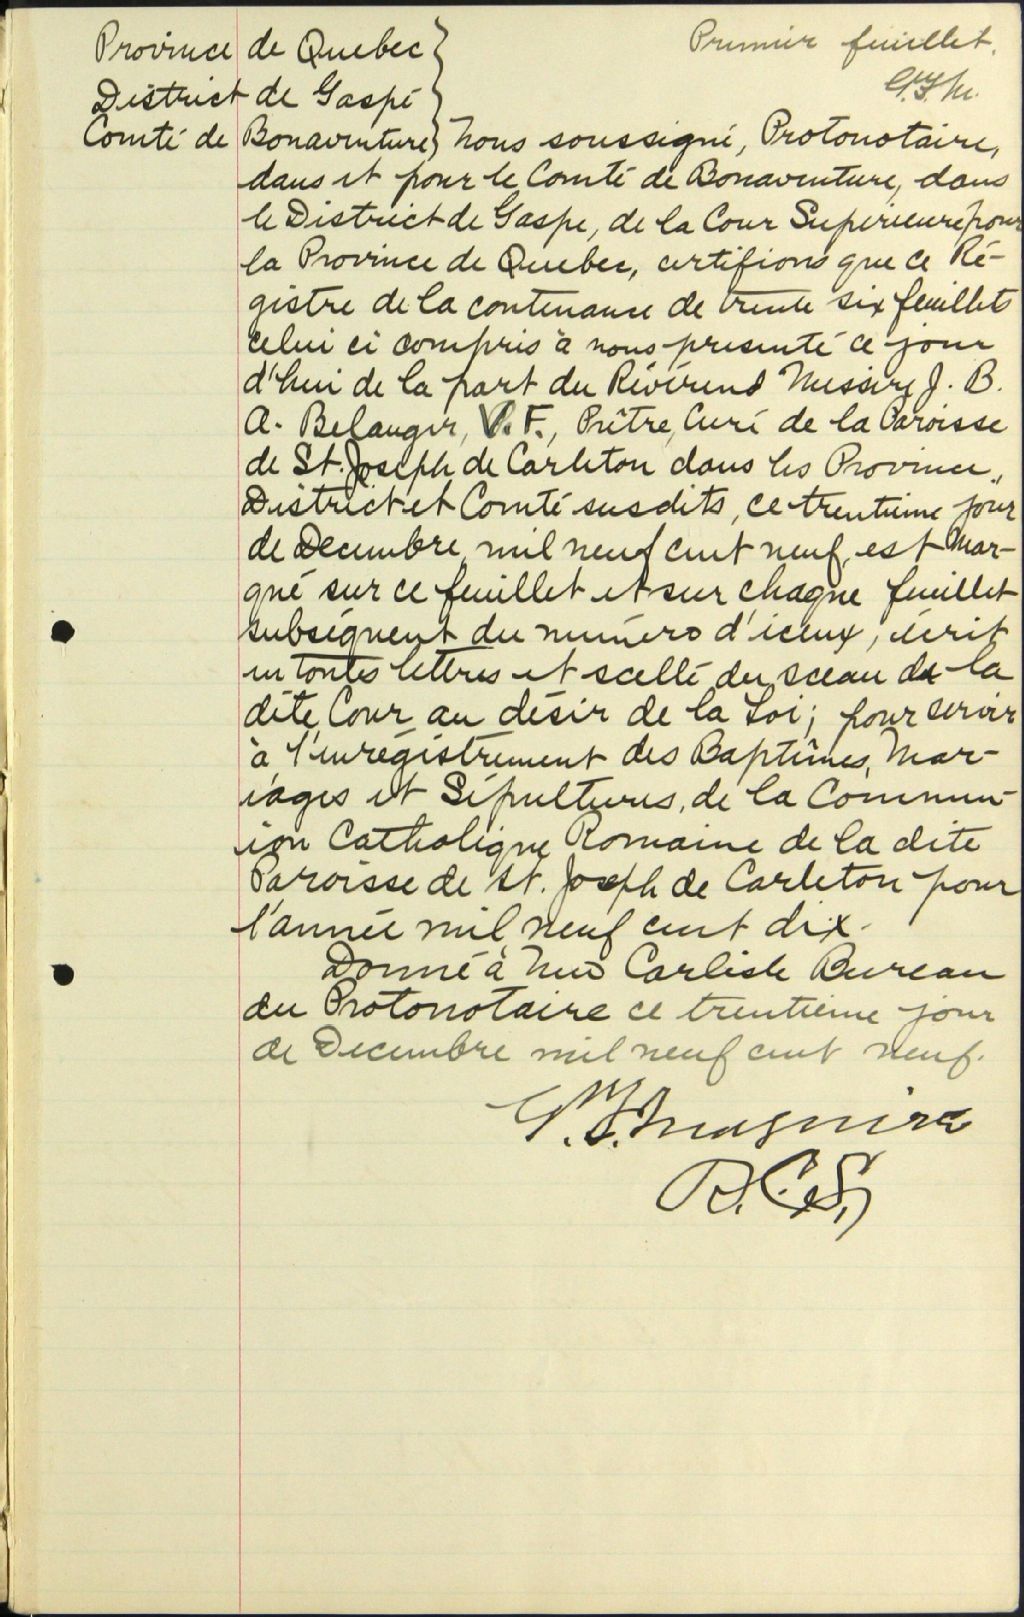 Province de Quebec
District de Gaspé
Premier feuillet.
Comté de Bonaventure} Nous soussigné, Protonotaire,
dans et pour le Comté de Bonaventure, dans
le District de Gaspe, de la Cour Superieure pour
la Province de Quebec, certifions que ce Ré-
gistre de la contenance de trente six feuillets
celui ci compris à nous presenté ce jour
d'hui de la part du Révérend Messire J. B.
A. Belanger, V. F., Prêtre, Curé de la Paroisse
de St. Joseph de Carleton dans les Province,
District et Comté susdits, ce trentieme jour
de Decembre mil neuf cent neuf, est Mar-
qué sur ce feuillet et sur chaque feuillet
subséquent du numéro d'iceux, écrit
en toutes lettres et scellé du sceau de la
dite Cour au désir de la Loi; pour servir
à l'enregistrement des Baptêmes, Mar-
iages et Sépultures, de la Commun-
ion Catholique Romaine de la dite
Paroisse de St. Joseph de Carleton pour
l'année mil neuf cent dix.
Donné à New Carlisle Bureau
du Protonotaire ce trentieme jour
de Decembre mil neuf cent neuf.
Maguire
P.C.S.